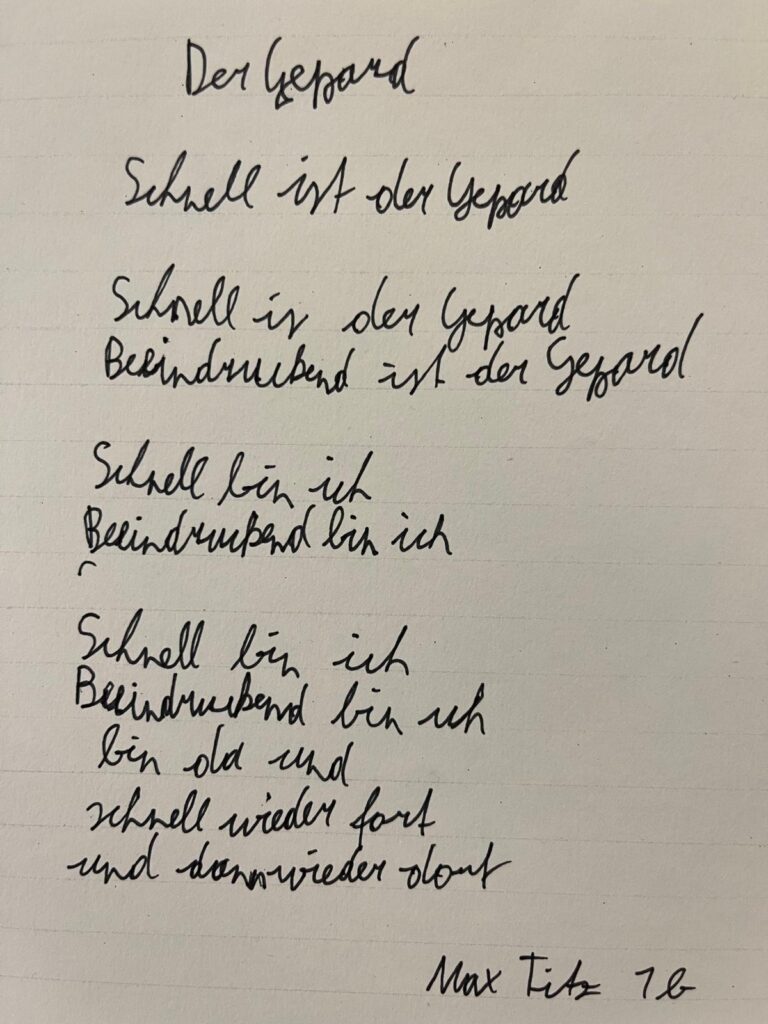 Der Gepard
Schnell ist der Gepard
Schnell is der Gepard
Beeindruckend ist der Gepard
Schnell bin ich
Beeindruckend bin ich
Schnell bin ich
Beeindruckend bin ich
bin da und
schnell wieder fort
und dann wieder dort
Max Titz 7b